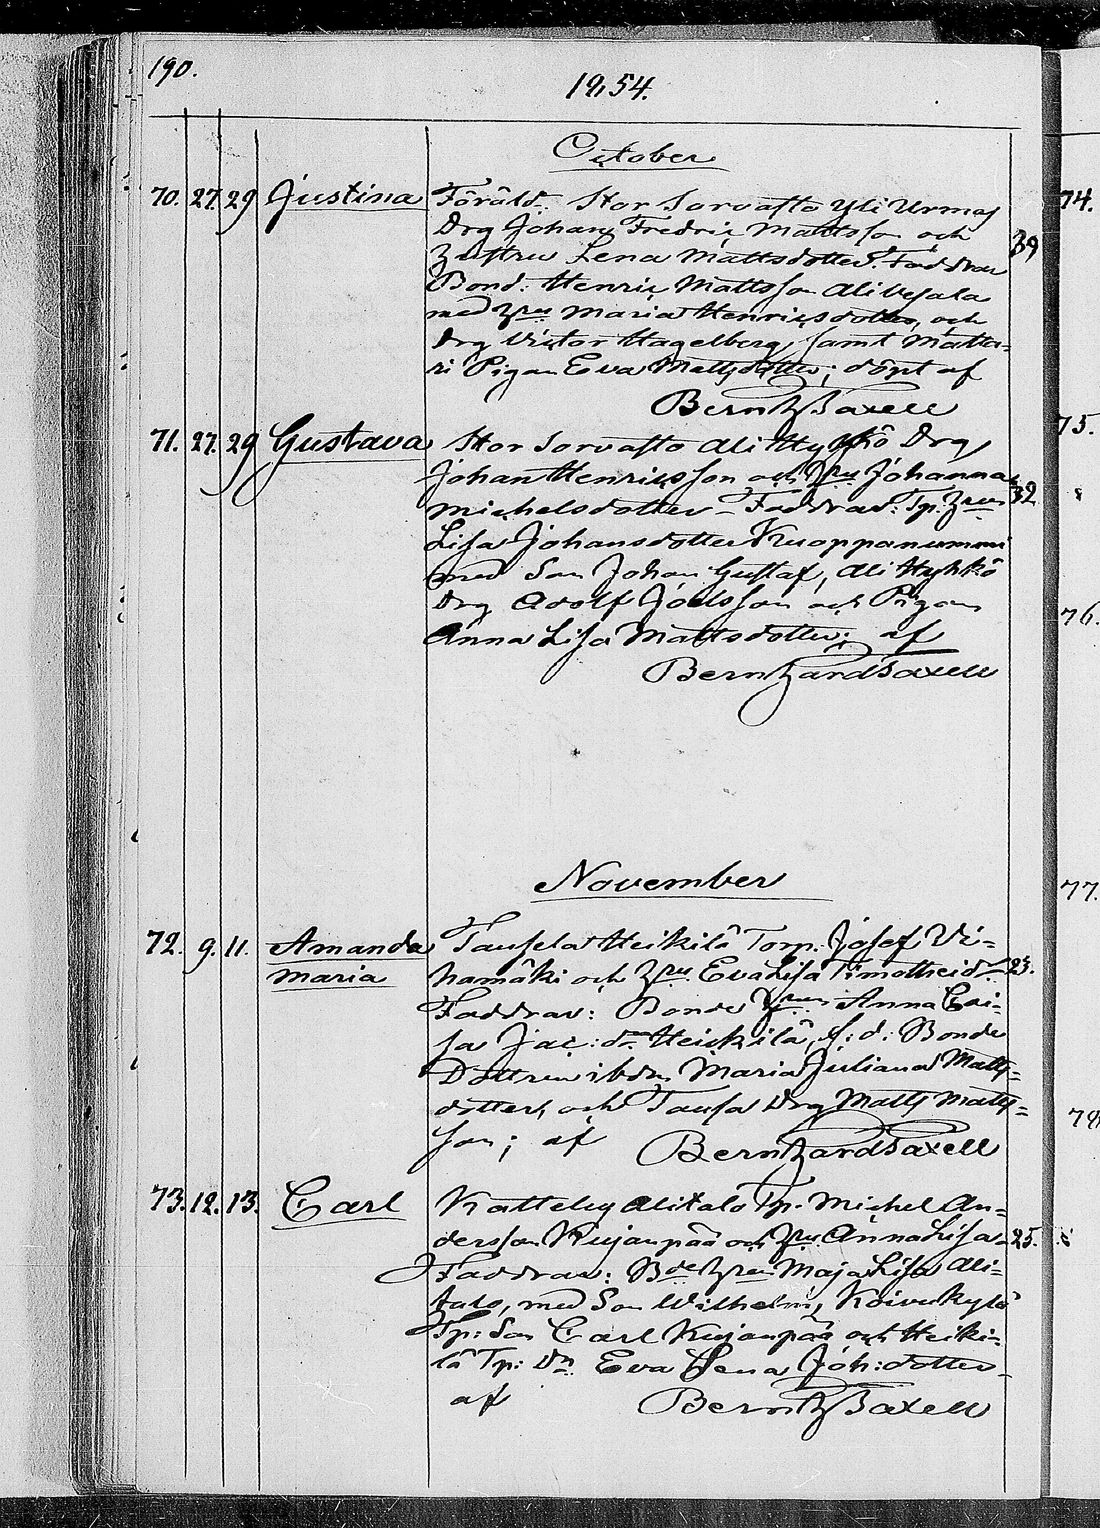 190.
1854.
October
70. 27. 29 Justina Föräld. Stor Sorvasto Yli Urmas
Drg Johan Fredric Mattsson och 39
Hustru Lena Mattsdotter. Faddrar
Bond: Henric Mattsson Ali Vesala
med Hru Maria Henricsdotter, och
Drg Victor Hagelberg, samt Matta-
ri Pigan Eva Mattsdotter; döpt af
Bernh Saxell
71. 27. 29 Gustava Stor Sorvasto Ali Hyhkö Drg
Johan Henricsson och Hru Johanna 32
Michelsdotter – Faddrar: Tp. Hrun
Lisa Johansdotter Kuoppanummi
med Son Johan Gustaf, Ali Hyhkö
Drg Adolf Joelsson och Pigan
Anna Lisa Mattsdotter; af
Bernhard Saxell
November
72. 9. 11. Amanda Taufsela Heikilä Torp. Josef Vi-
Maria hamäki och Hru Eva Lisa Timotheid 23.
Faddrar: Bonde Hrun Anna Cai-
sa Jac: dr Heickilä, f: d: Bonde
Dottren ibdm Maria Juliana Matts-
dotter, och Taufsa Drg Matts Matts-
son; af Bernhard Saxell
73. 12. 13. Carl Katteleg Alitalo Tp. Michel An-
dersson Kujanpää och Hru Anna Lisa 25.
Faddrar: Bde Hrun Maja Lisa Ali-
talo, med Son Wilhelm, Koivukylä
Tp: Son Carl Kujanpää och Heiki-
lä Tp: Dn Eva Lena Joh: dotter
af Bernh Saxell
74.
75.
76.
77.
78